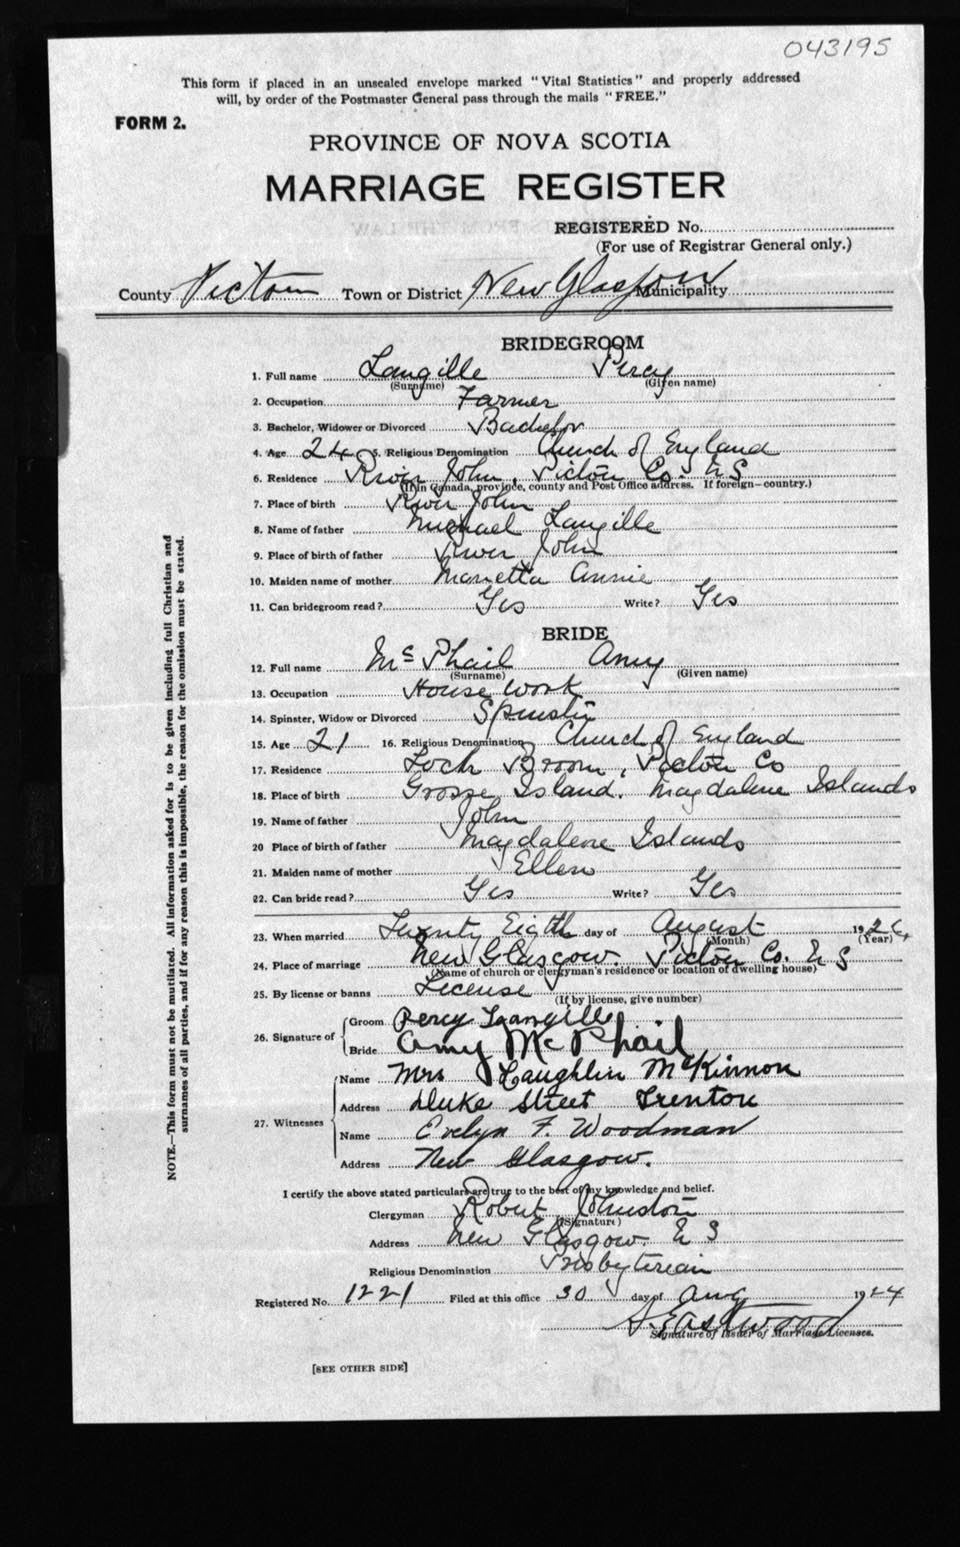 043195
This form if placed in an unsealed envelope marked "Vital Statistics" and properly addressed
will, by order of the Postmaster General pass through the mails "FREE."
FORM 2.
PROVINCE OF NOVA SCOTIA
MARRIAGE REGISTER
REGISTERED No.
(For use of Registrar General only.)
County Pictou Town or District New Glasgow Municipality
BRIDEGROOM
1. Full name Langille Percy
(Surname) (Given name)
2. Occupation Farmer
3. Bachelor, Widower or Divorced Bachelor
4. Age 24 5. Religious Denomination Church of England
6. Residence River John, Pictou Co. N S
(If in Canada, province, county and Post Office address. If foreign—country.)
7. Place of birth River John
8. Name of father Michael Langille
9. Place of birth of father River John
10. Maiden name of mother Marietta Annie
11. Can bridegroom read? Yes Write? Yes
BRIDE
12. Full name McPhail Amy
(Surname) (Given name)
13. Occupation House work
14. Spinster, Widow or Divorced Spinster
15. Age 21 16. Religious Denomination Church of England
17. Residence Loch Broom, Pictou Co
18. Place of birth Grosse Island. Magdalene Islands
19. Name of father John
20 Place of birth of father Magdalene Islands
21. Maiden name of mother Ellen
22. Can bride read? Yes Write? Yes
23. When married Twenty Eigth day of August 192
(Month) (Year)
24. Place of marriage New Glasgow Pictou Co. N S
(Name of church or clergyman's residence or location of dwelling house)
25. By license or banns License
(If by license, give number)
26. Signature of
Groom Percy Langille
Bride Amy McPhail
27. Witnesses
Name Mrs Laughlin McKinnon
Address Duke Street Trenton
Name Evelyn F. Woodman
Address New Glasgow.
I certify the above stated particulars are true to the best of my knowledge and belief.
Clergyman Robert Johnston
(Signature)
Address New Glasgow. N S
Religious Denomination Presbyterian
Registered No. 1221 Filed at this office 30 day of Aug 1924
Eastwood
Signature of Issuer of Marriage Licenses.
[SEE OTHER SIDE]
NOTE.—This form must not be mutilated. All information asked for is to be given including full Christian and
surnames of all parties, and if for any reason this is impossible, the reason for the omission must be stated.